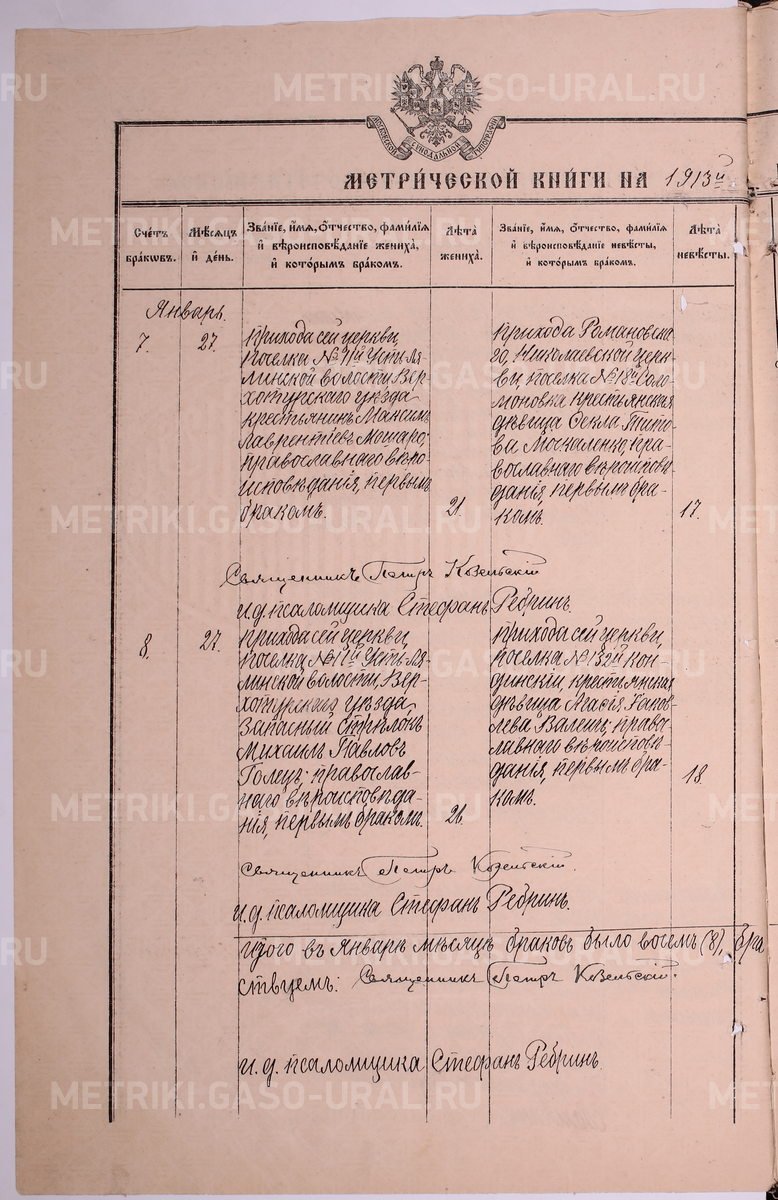 METRIKI.GASO-URAL.RU
МОСКОВСКОЙ СѴНОДАЛЬНОЙ ТИПОГРАФІИ
МЕТРИ́ЧЕСКОЙ КНИ́ГИ НА 1913й
Сче́тъ бра́кѡвъ.
Мѣ́сѧцъ и҆ де́нь.
Зва́нїе, и҆́мѧ, ѻ҆́тчество, фами́лїѧ
и҆ вѣроисповѣ́данїе жениха̀,
и҆ кото́рымъ бра́комъ.
Лѣ́та жениха̀.
Зва́нїе, и҆́мѧ, ѻ҆́тчество, фами́лїѧ
и҆ вѣроисповѣ́данїе невѣ́сты,
и҆ кото́рымъ бра́комъ.
Лѣ́та невѣ́сты.
Январь.
7.
27.
Прихода сей церкви,
поселка № 71й Усть-Ля-
линской волости, Вер-
хотурского уезда
крестьянинъ Максимъ
Лаврентіевъ Мошаро,
православнаго вѣро-
исповѣданія, первымъ
бракомъ.
21.
Прихода Романовска-
го, Николаевской церк-
ви, поселка № 18й Соло-
моновка крестьянская
дѣвица Ѳекла Тито-
ва Москаленко, пра-
вославнаго вѣроиспов-
данія, первымъ бра-
комъ.
17.
Священникъ Петръ Козельскій
и. д. псаломщика Стефанъ Ребринъ.
8.
27.
Прихода сей церкви,
поселка № 17й Усть-Ля-
линской волости, Вер-
хотурскаго уѣзда,
запасный стрѣлокъ
Михаилъ Павловъ
Голецъ; православ-
наго вѣроисповѣда-
нія, первымъ бракомъ.
26.
Прихода сей церкви,
поселка № 132й Кон-
динскій, крестьянская
дѣвица Агаѳія Яков-
лева; право-
славнаго вѣроисповѣ-
данія, первымъ бра-
комъ.
18
Священникъ Петръ Козельскій.
и. д. псаломщика Стефанъ Ребринъ.
Итого въ Январѣ мѣсяцѣ браковъ было восемь (8),
Священникъ Петръ Козельскій.
и. д. псаломщика Стефанъ Ребринъ.